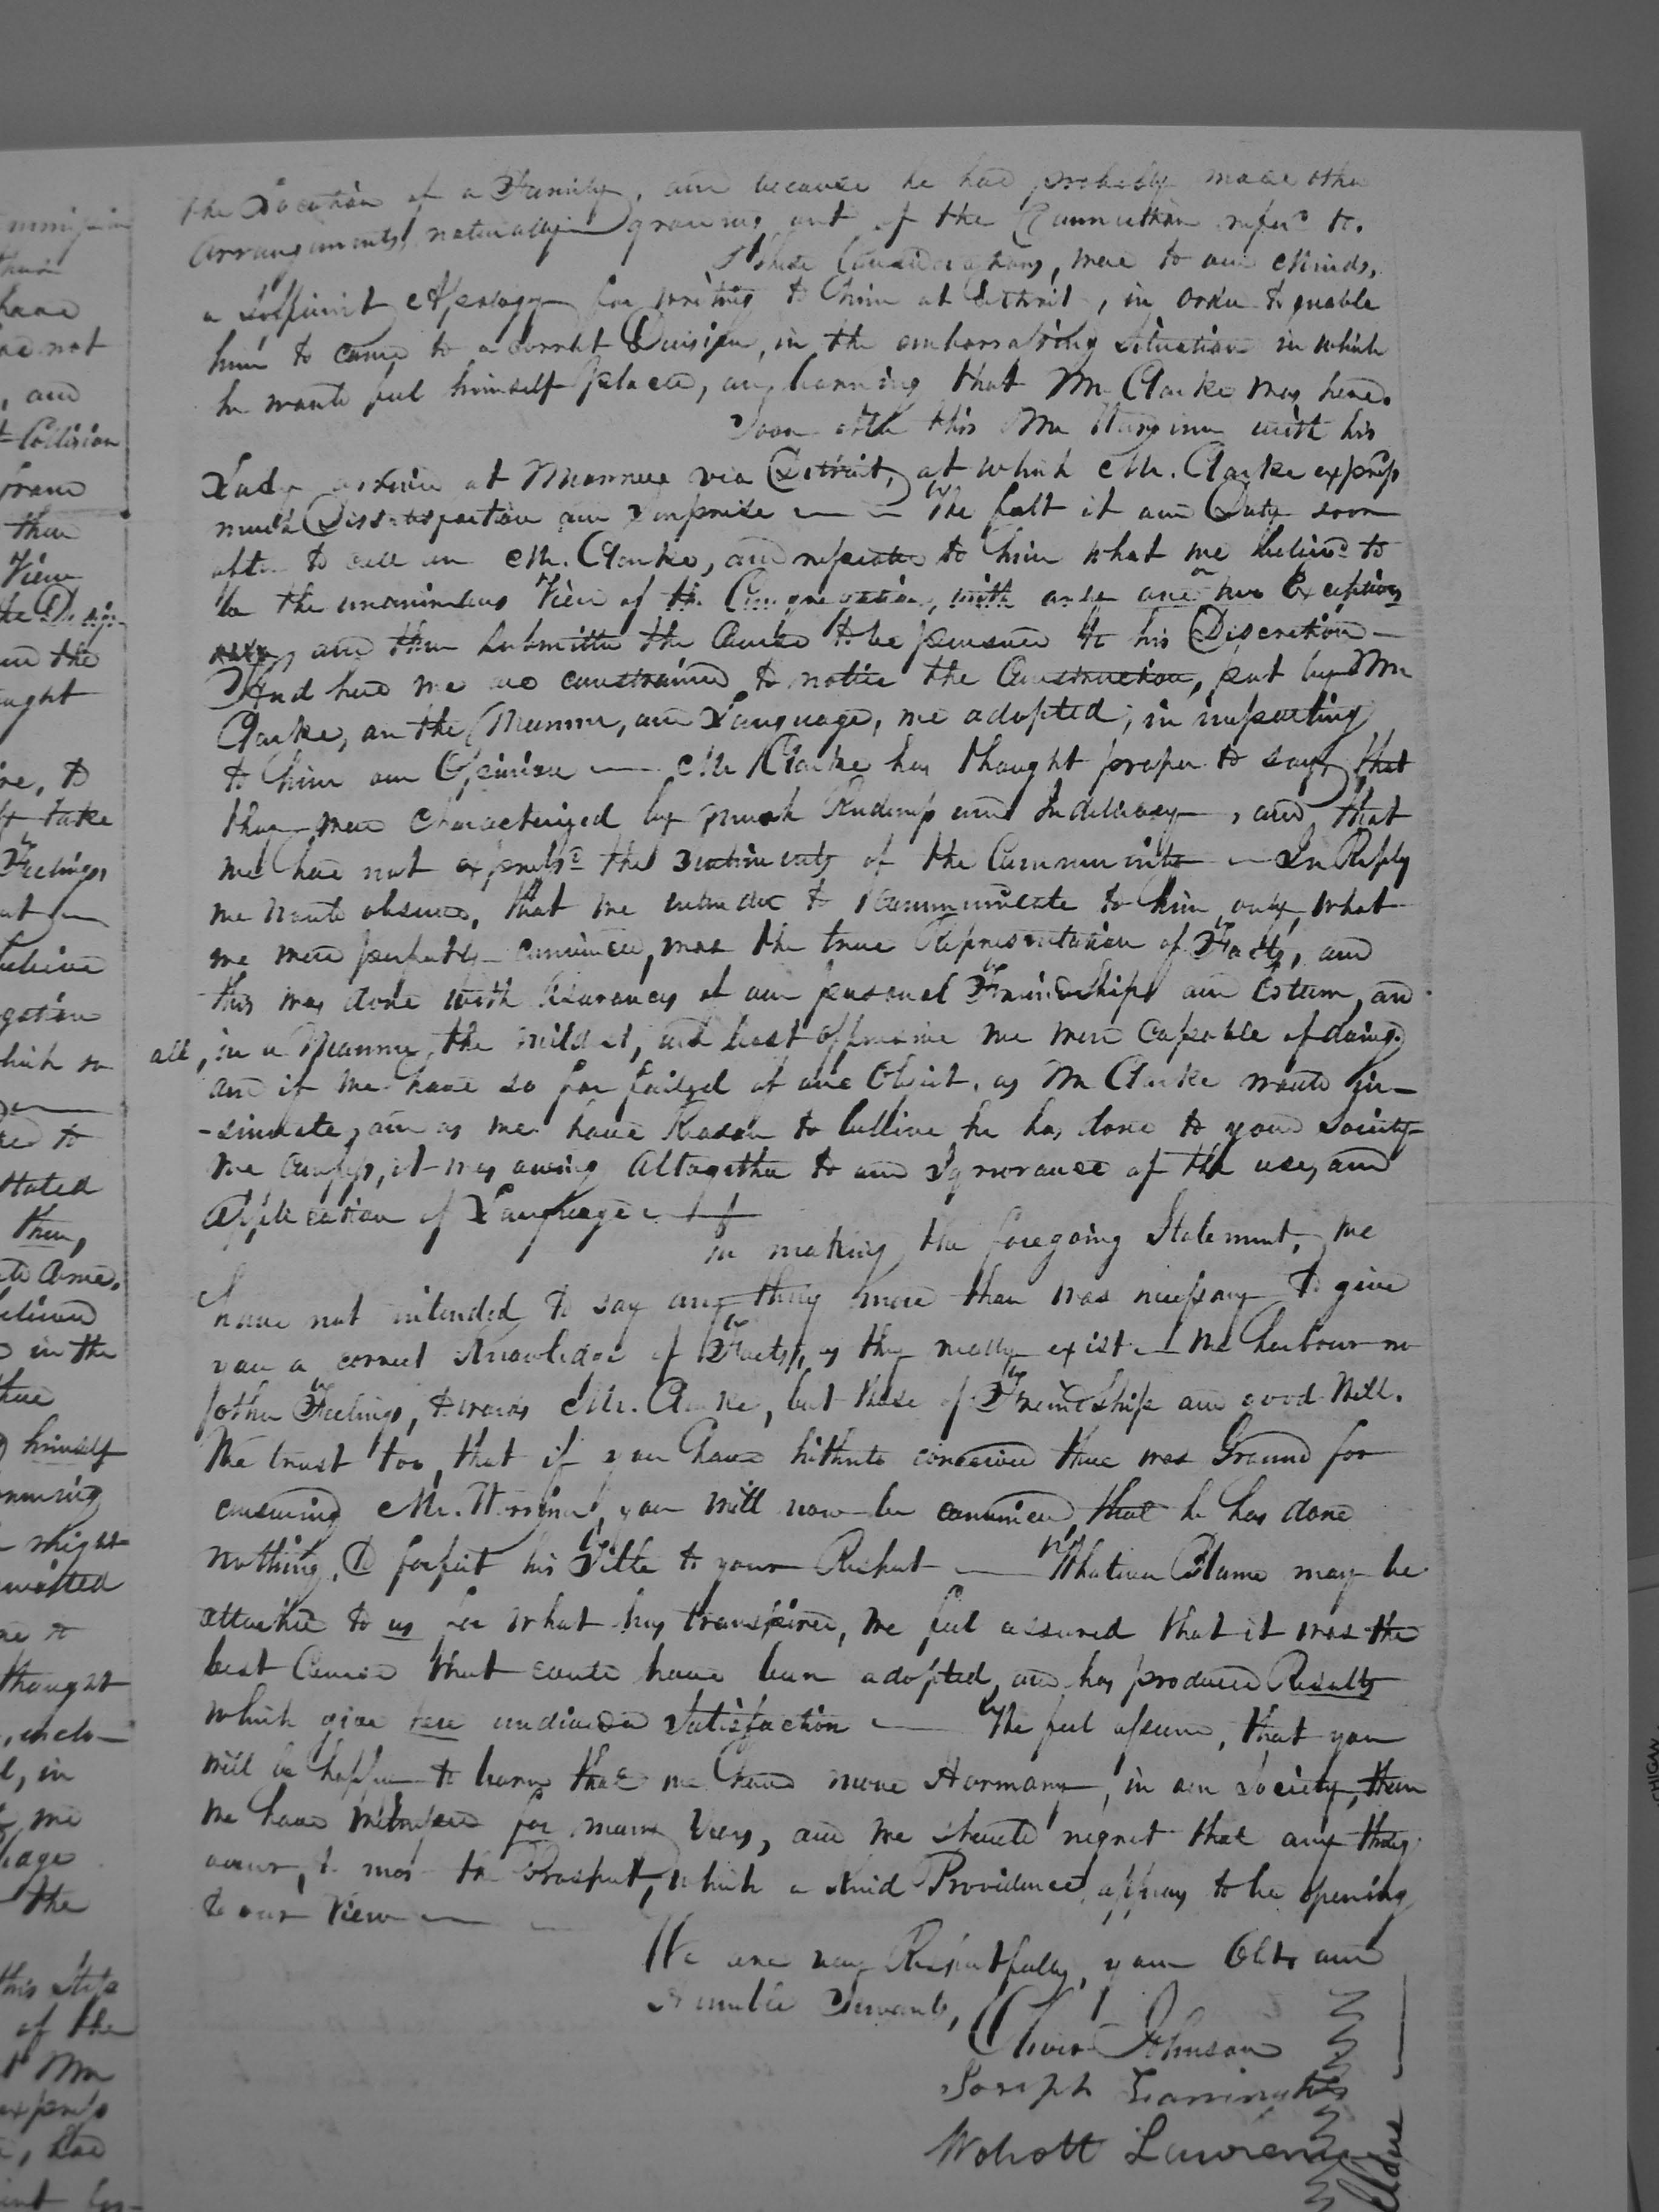 the Location of a Family, and because he had probably made other
arrangements, naturally growing out of the Connection refer'd to.
These Considerations, were to our Minds,
a sufficient Apology for writing to him at Detroit, in order to enable
him to come to a correct Decision, in the embarrassing situation in which
he would feel himself placed, on learning that Mr Clarke was here.
Soon after this Mr with his
Lady arrived at Monroe via Detroit, at which Mr. Clarke express
much Dissatisfaction and Surprise — — We felt it our Duty soon
after to call on Mr. Clarke, and repeated to him what we believed to
be the unanimous View of the Congregation, with only one or two Exceptions
and then submitted the Course to be pursued to his Discretion —
And here we are constrained to notice the Construction, put by Mr
Clarke, on the Manner, and Language, we adopted, in imparting
to him our Opinion — Mr Clarke has thought proper to say, that
they were characterized by much Rudeness and Indelicacy, and that
we have not express'd the sentiments of the Community — In Reply
we would observe, that we intended to communicate to him only, what
we were perfectly convinced, was the true Representation of Facts, and
this was done with Assurances of our personal Friendship and Esteem, and
all, in a Manner, the mildest, and least offensive we were capable of doing.
and if we have so far failed of our Object, as Mr Clarke would in-
-sinuate, and as we have Reason to believe he has done to your Society
we confess, it was owing Altogether to our Ignorance of the use, and
Application of Language —
In making the foregoing Statement, we
have not intended to say any thing more than was necessary to give
you a correct Knowledge of Facts, as they really exist — We harbour no
other Feelings, towards Mr. Clarke, but those of Friendship and good Will.
We trust too, that if you have hitherto conceived there was Ground for
censuring Mr. you will now be convinced, that he has done
nothing, to forfeit his Title to your Respect — Whatever Blame may be
attached to us for what has transpired, we feel assured that it was the
best Course that could have been adopted, and has produced Results
which give here undivided Satisfaction — We feel assured, that you
will be happy to learn that we have more Harmony, in our Society, than
we have witnessed for many Years, and we should regret that any thing
occur, to mar the Prospect, which a kind Providence, appears to be opening
to our View — —
We are very Respectfully, your Obt. and
Humble Servants,
Oliver Johnson
Joseph
Wolcott Lawrence
Elders
mmission
have
not
, and
Collision
from
then
View
the
ought
to
take
Feelings
believe
which so
to
stated
them,
believed
in the
himself
might
me to
thought
, in
we
the
this step
of the
Mr
express
, had